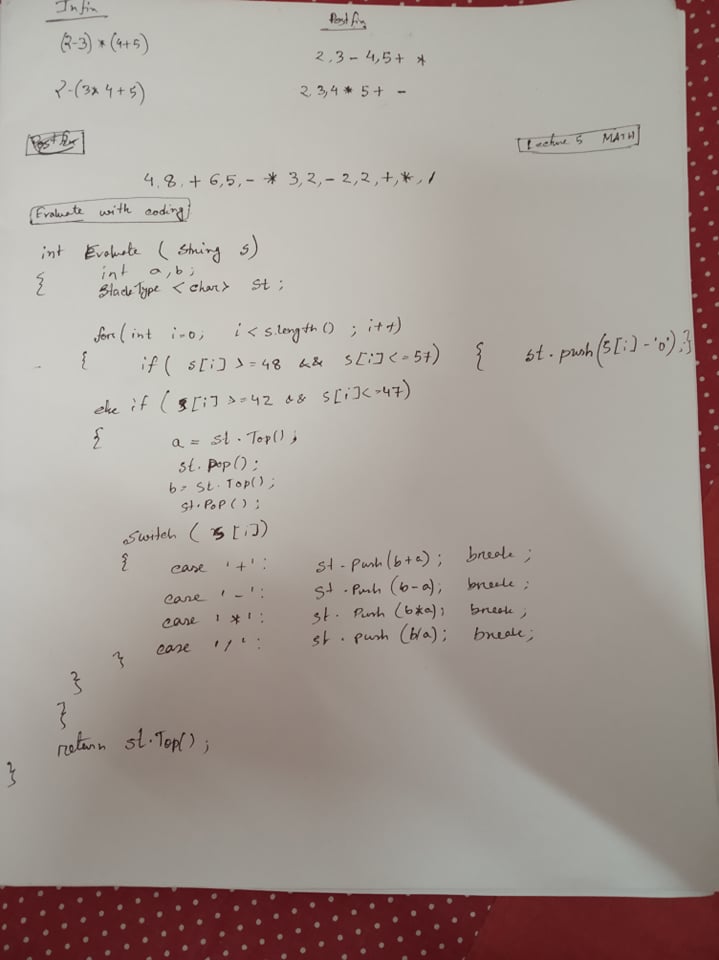 Infix
Postfix
(2-3) * (4+5)
2,3 - 4,5 + *
2-(3*4+5)
2 3,4 * 5 + -
Lecture 5 MATH
4,8, + 6,5, - * 3,2, - 2,2, +, *, /
Evaluate with coding
int Evaluate ( String s)
{ int a,b;
StackType <char> st ;
for( int i=0; i < s.length() ; i++)
{ if( s[i] >= 48 && s[i] <= 57) { st.push(s[i] - '0'); }
else if ( s[i] >= 42 && s[i] <= 47)
{ a = st.Top();
st.pop();
b = st.Top();
st.PoP();
switch ( s[i])
{ case '+': st.Push(b+a); break;
case '-': st.Push (b-a); break;
case '*': st.Push (b*a); break;
case '/': st.push (b/a); break;
}
}
}
return st.Top();
}